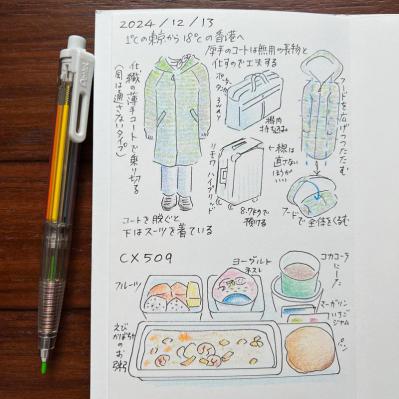 2024/12/13
1℃の東京から18℃の香港へ
厚手のコートは無用の長物と
化すので工夫する
化繊の薄手コートで乗り切る
(風は通さないタイプ)
ポーター
タンカー
3WAY
機内
持ち込み
リモワ
ハイブリッド
8.7キロで
預ける
コートを脱ぐと
下はスーツを着ている
フードを広げつつたたむ
←線は
直さない
ほうがいい
フードで全体をくるむ
CX509
フルーツ
ヨーグルト
ネスレ
コカコーラ
にした
マーガリン
いちご
ジャム
えび
かぼちゃの
お粥
パン